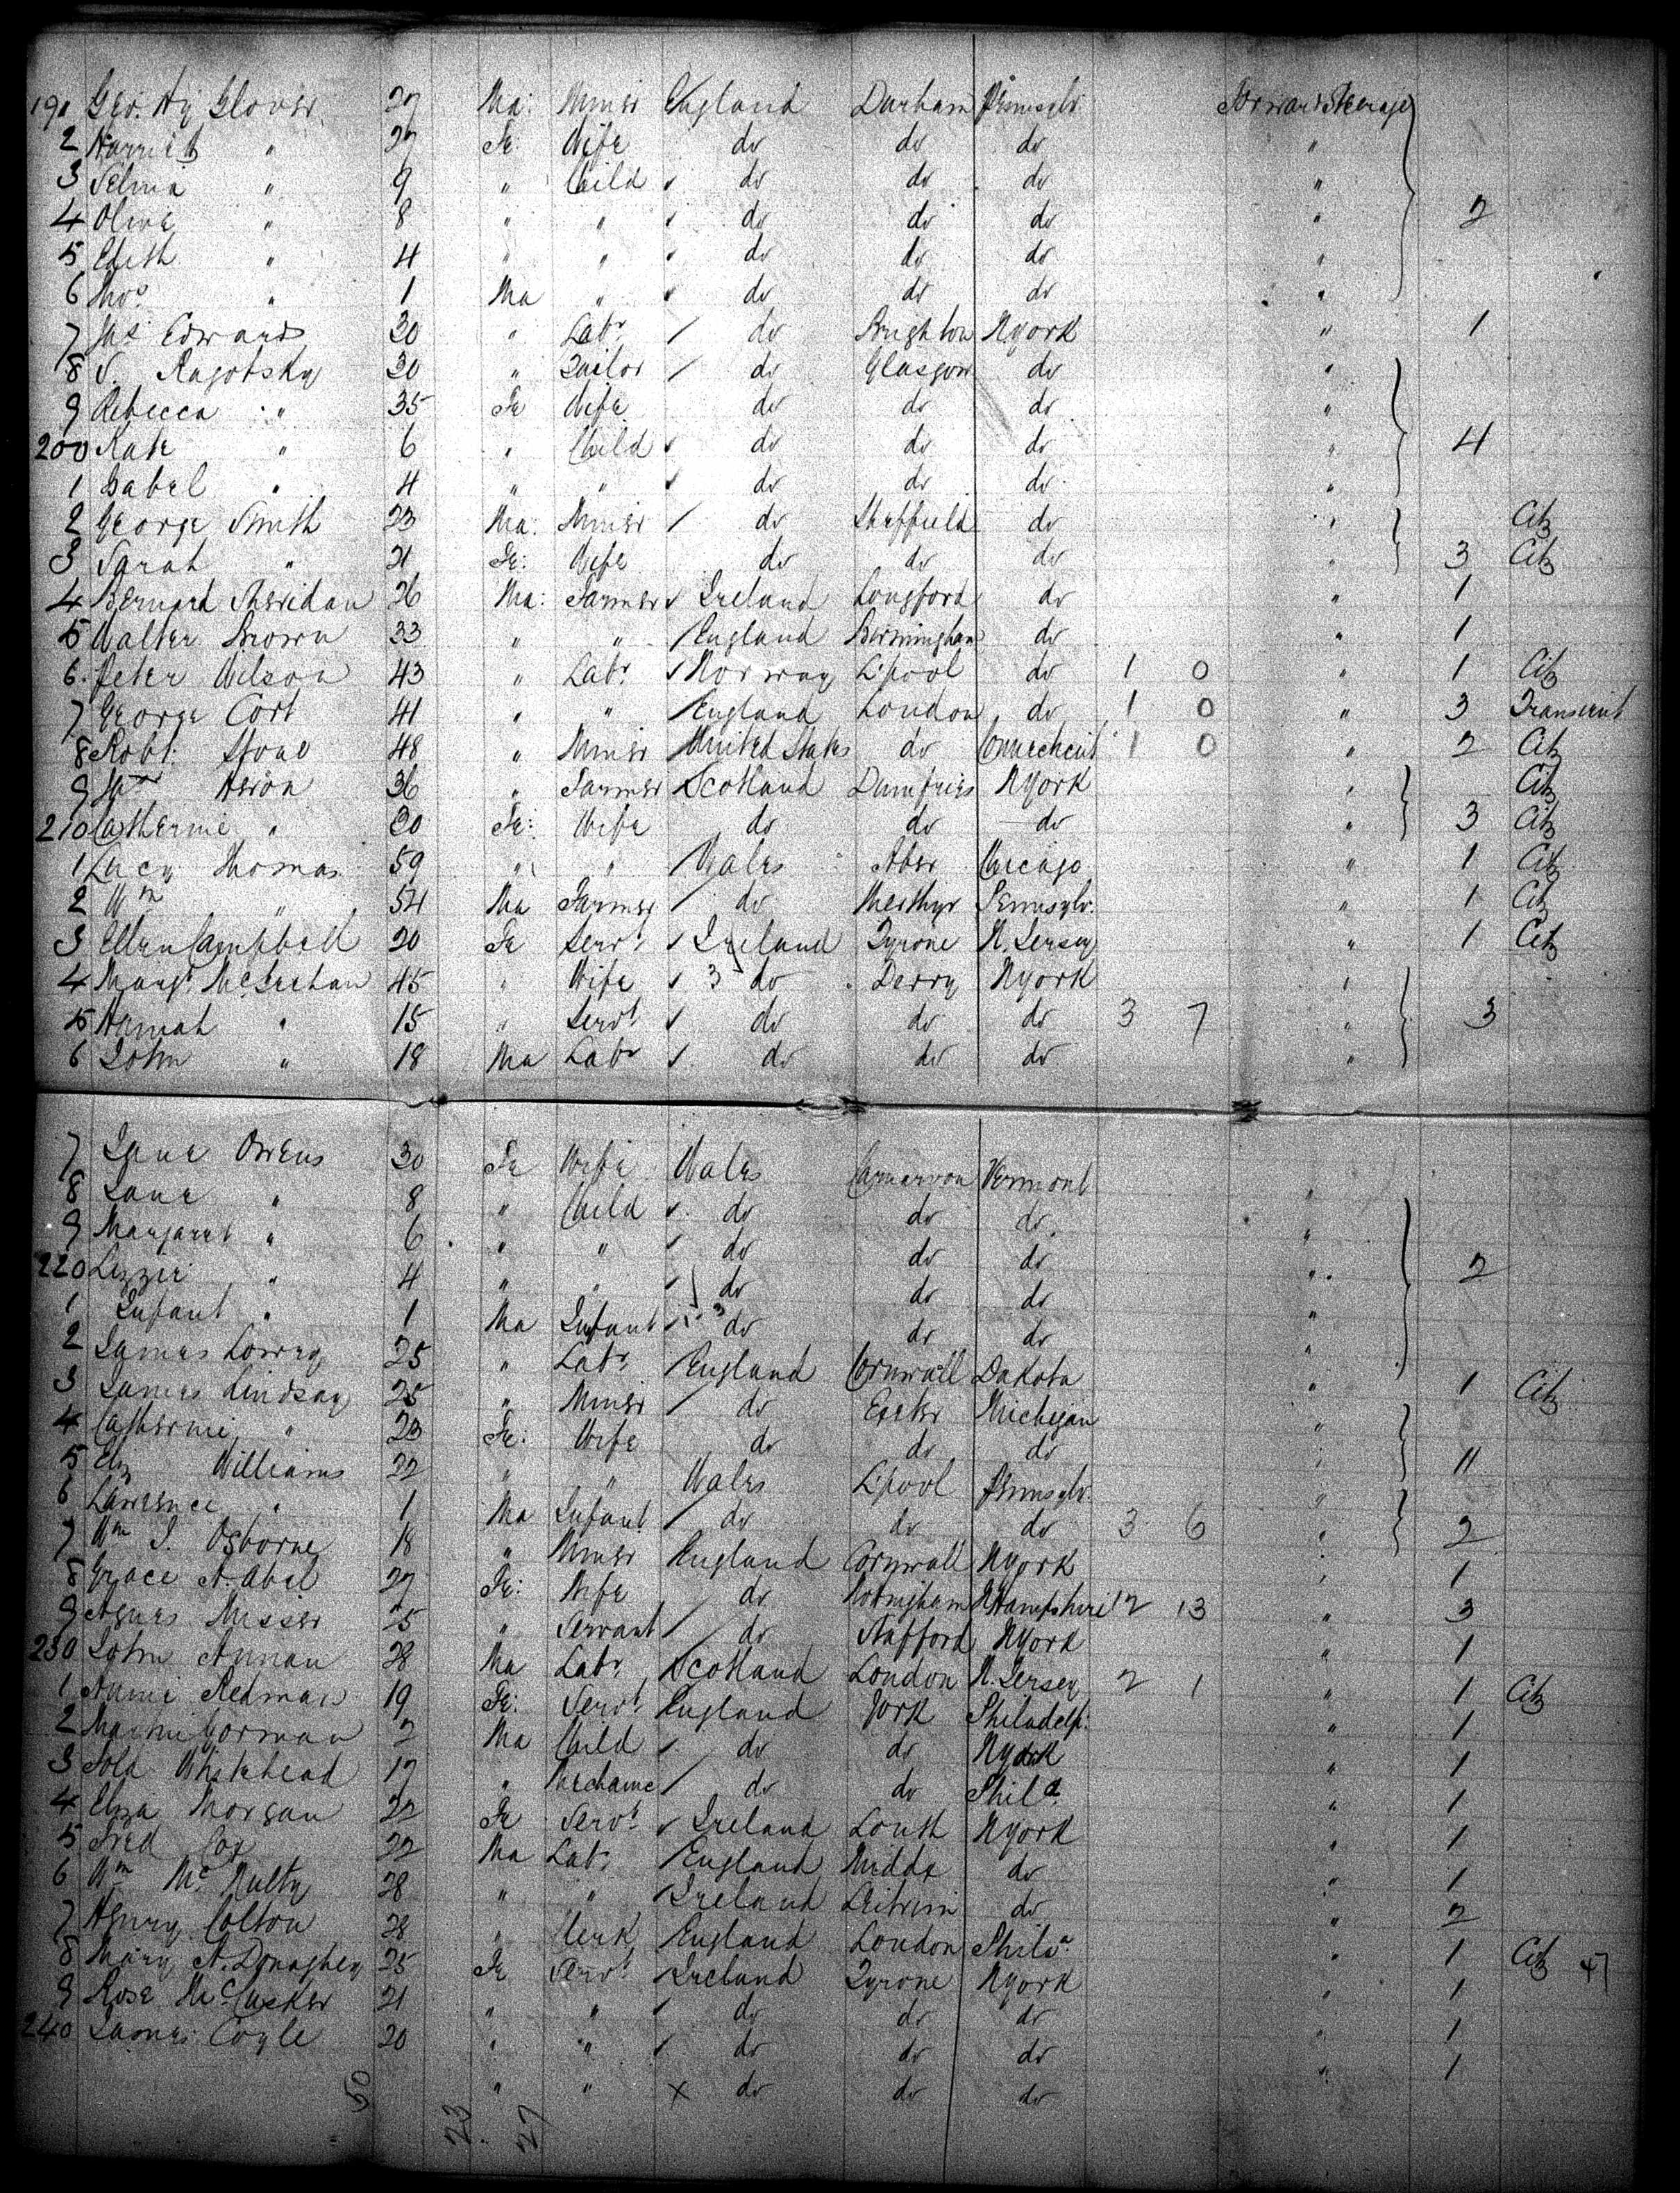 191 Geo. Hy Glover 27 Ma: Miner England Durham Pennsylv. Forward Steerage
2 Harriet " 27 Fe: Wife do do do "
3 Selina " 9 " Child do do do "
4 Olive " 8 " " do do do " 2
5 Edith " 4 " " do do do "
6 Thos. " 1 Ma " do do do "
7 Jas Edwards 30 " Labr / do Brighton NYork " 1
8 S. Ragotsky 30 " Tailor / do Glasgow do "
9 Rebecca " 35 Fe Wife do do do "
200 Kate " 6 " Child do do do " 4
1 Isabel " 4 " " do do do "
2 George Smith 23 Ma: Miner / do Sheffield do " Citz
3 Sarah " 21 Fe: Wife do do do " 3 Citz
4 Bernard Sheridan 26 Ma: Farmer Ireland Longford do " 1
5 Walter Brown 33 " " / England Birmingham do " 1
6 Peter Wilson 43 " Labr Norway L'pool do 1 0 " 1 Citz
7 George Cort 41 " " / England London do 1 0 " 3 Transient
8 Robt. Stone 48 " Miner / United States do Connecticut 1 0 " 2 Citz
9 Heron 36 " Farmer / Scotland Dumfries NYork " Citz
210 Catherine " 30 Fe: Wife do do do " 3 Citz
1 Lucy Thomas 59 " " / Wales Aber Chicago " 1 Citz
2 Wm " 54 Ma Farmer / do Merthyr Pennsylv. " 1 Citz
3 Ellen Campbell 20 Fe Servt Ireland Tyrone N. Jersey " 1 Citz
4 Margt. 45 " Wife 3 do Derry NYork "
5 Hannah " 15 " Servt do do do 3 7 " 3
6 John " 18 Ma Labr do do do "
7 Jane Owens 30 Fe Wife Wales Carnarvon Vermont "
8 Jane " 8 " Child do do do "
9 Margaret " 6 " " do do do " 2
220 Lizzie " 4 " " do do do "
1 Infant " 1 Ma Infant 3 do do do "
2 James Lowry 25 " Labr / England Cornwall Dakota " 1 Citz
3 James Lindsay 25 " Miner / do Exeter Michigan "
4 Catherine " 23 Fe: Wife do do do " 11
5 Eliz Williams 22 " " Wales L'pool Pennsylv. "
6 Lawrence " 1 Ma Infant / do do do 3 6 " 2
7 Wm J. Osborne 18 " Miner / England Cornwall NYork " 1
8 Grace A. Abel 27 Fe: Wife do Notingham NHampshire 12 13 " 3
9 Agnes Misser 25 " Servant / do Stafford NYork " 1
230 John Annan 28 Ma Labr / Scotland London N. Jersey 2 1 " 1 Citz
1 Annie Redman 19 Fe: Servt / England York Philadelp. " 1
2 Gorman 2 Ma Child do do NYork " 1
3 Whitehead 17 " Mechanic / do do Phila. " 1
4 Eliza Morgan 22 Fe Servt Ireland Louth NYork " 1
5 Fred Cox 22 Ma Labr / England Middx do " 1
6 Wm McNulty 28 " " / Ireland Leitrim do " 2
7 Henry Colton 28 " Clerk / England London Phila. " 1 Citz 47
8 Mary A. Donaghey 25 Fe Servt / Ireland Tyrone NYork " 1
9 Rose McCusker 21 " " do do do " 1
240 James Coyle 20 " " do do do " 1
" " x do do do
50 23 27